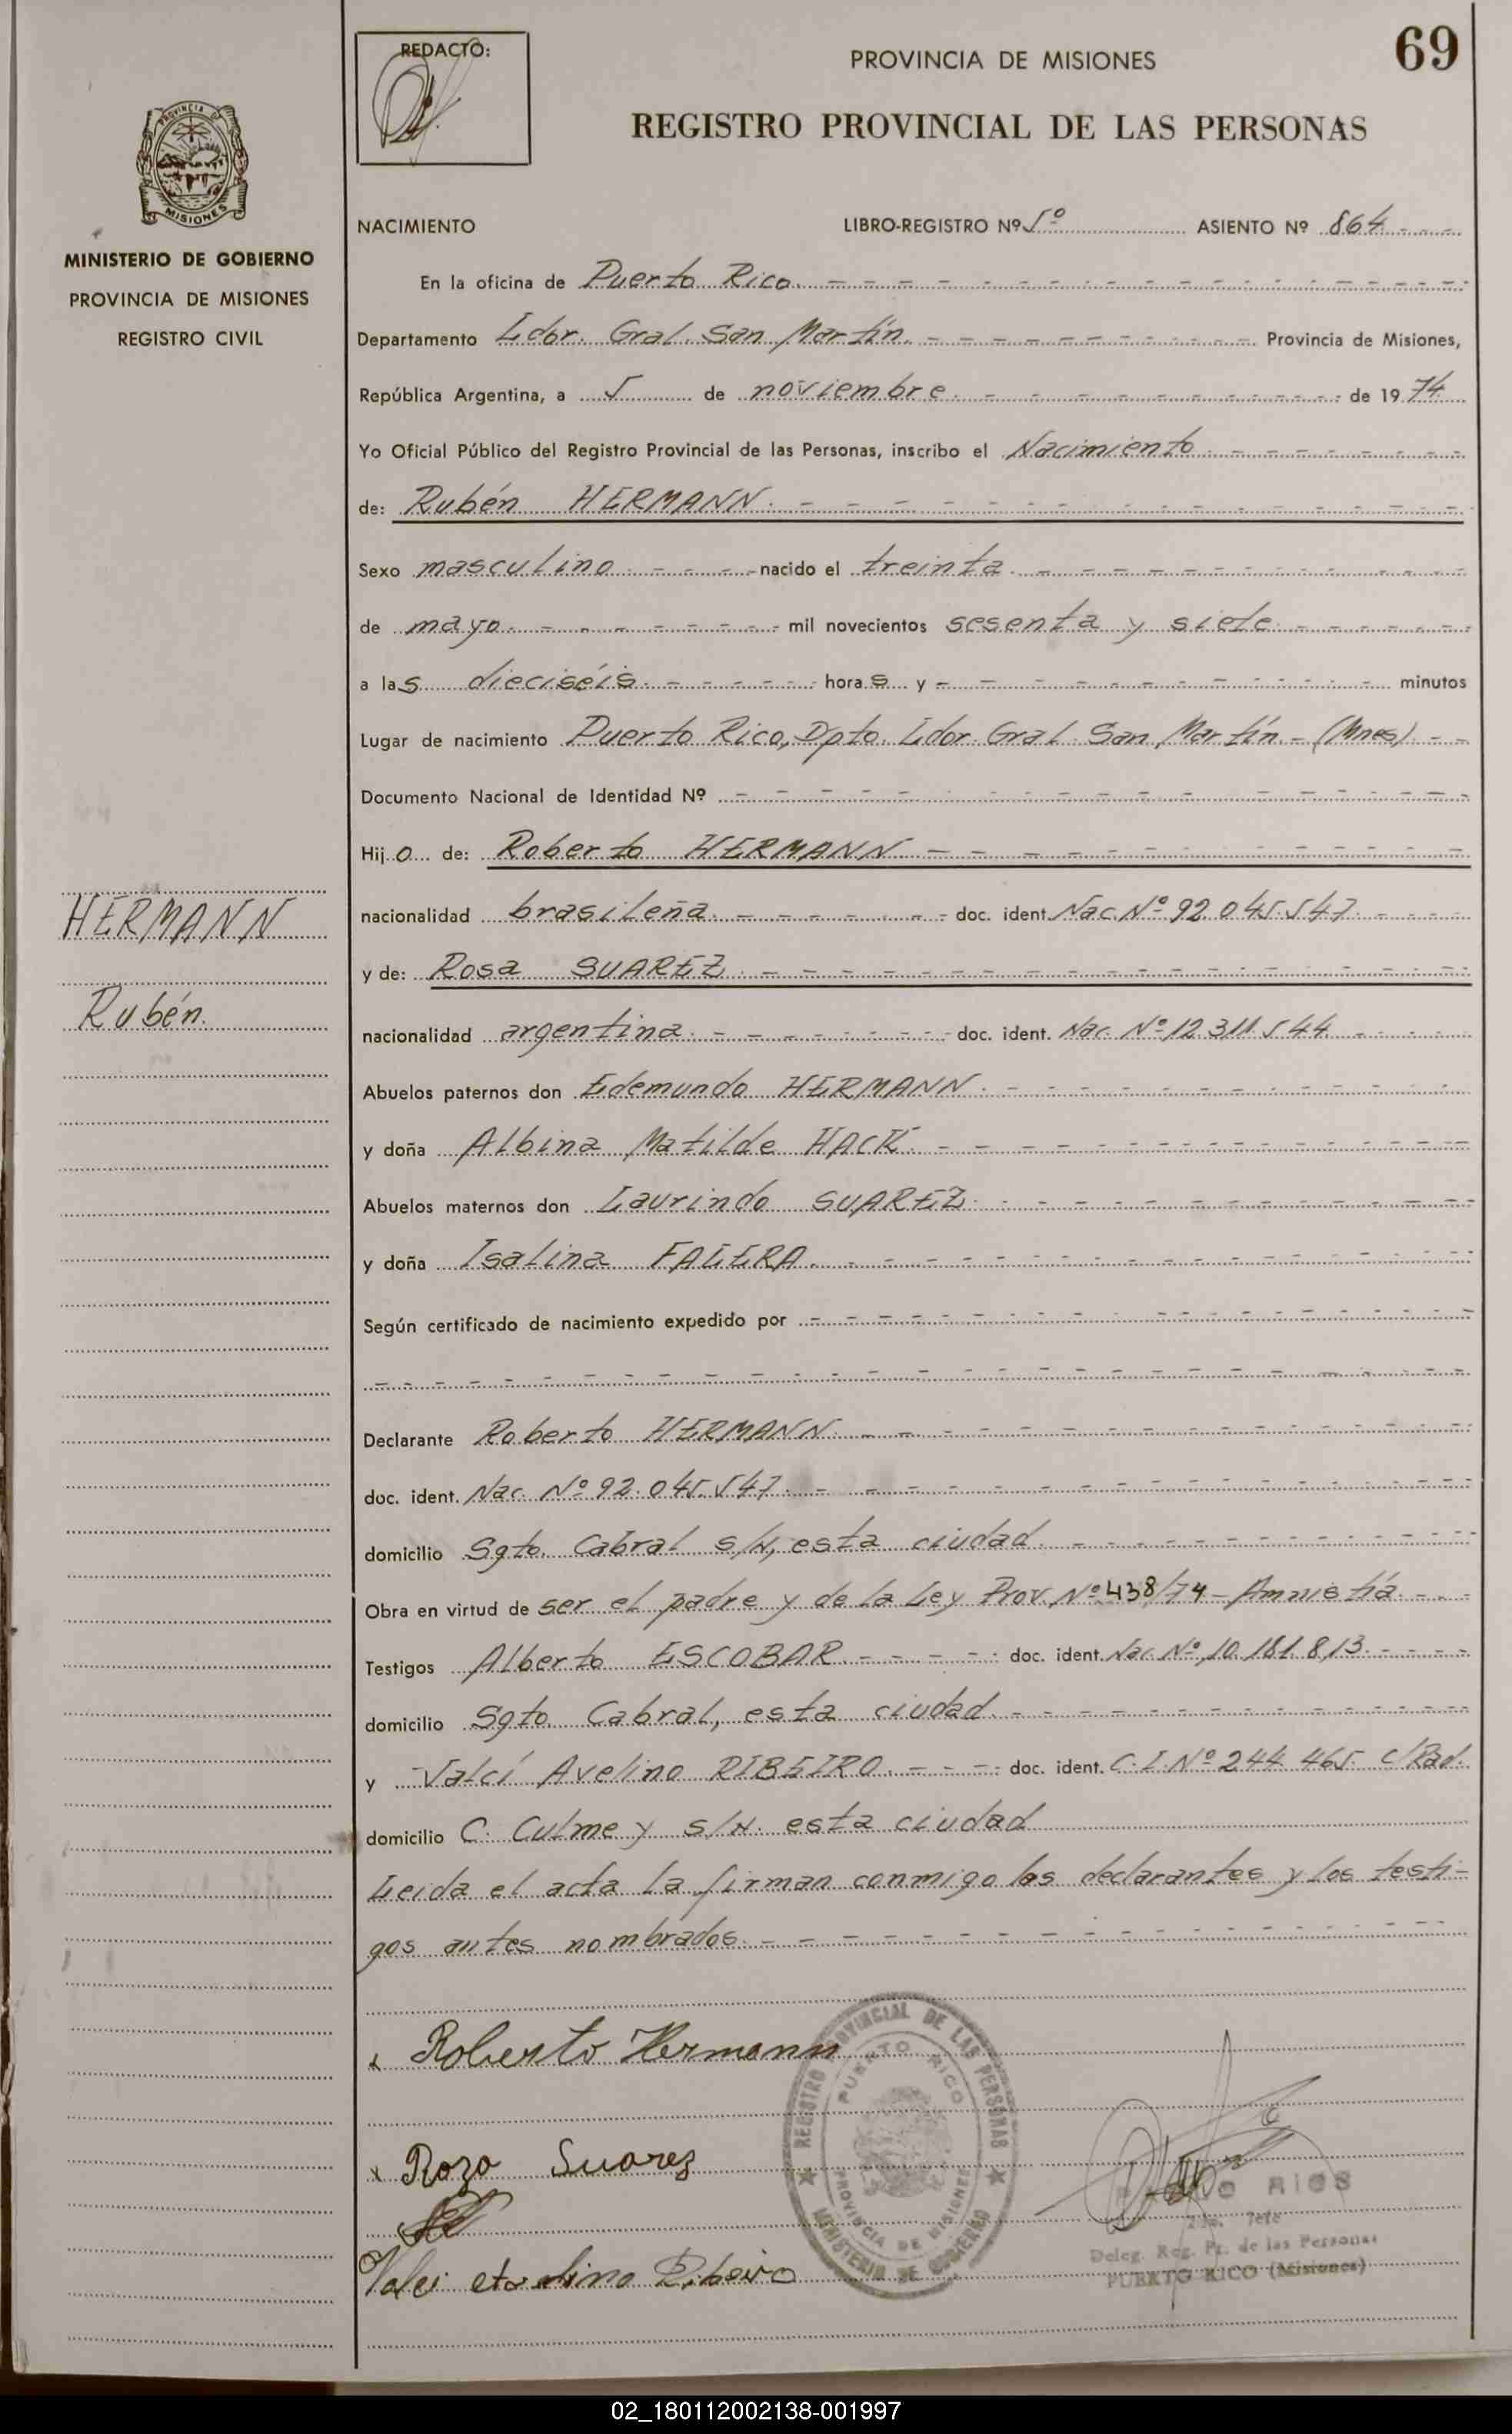 REDACTÓ:
PROVINCIA DE MISIONES
69
REGISTRO PROVINCIAL DE LAS PERSONAS
PROVINCIA DE
MISIONES
MINISTERIO DE GOBIERNO
PROVINCIA DE MISIONES
REGISTRO CIVIL
NACIMIENTO LIBRO-REGISTRO Nº 5º ASIENTO Nº 864
En la oficina de Puerto Rico.
Departamento Ldor. Gral. San Martín. Provincia de Misiones,
República Argentina, a 5 de noviembre. de 1974
Yo Oficial Público del Registro Provincial de las Personas, inscribo el Nacimiento
de: Rubén HERMANN.
Sexo masculino. nacido el treinta.
de mayo. mil novecientos sesenta y siete
a las dieciséis. horas y - minutos
Lugar de nacimiento Puerto Rico, Dpto. Ldor. Gral. San Martín. - (Mnes).
Documento Nacional de Identidad Nº
Hijo de: Roberto HERMANN
HERMANN
nacionalidad brasileña. doc. ident. Nac. Nº 92.045.547.
y de: Rosa SUAREZ.
Rubén.
nacionalidad argentina. doc. ident. Nac. Nº 12.311.544.
Abuelos paternos don Edemundo HERMANN.
y doña Albina Matilde HACK.
Abuelos maternos don Laurindo SUAREZ.
y doña Isalina
Según certificado de nacimiento expedido por
Declarante Roberto HERMANN.
doc. ident. Nac. Nº 92.045.547.
domicilio Sgto. Cabral s/N, esta ciudad.
Obra en virtud de ser el padre y de la Ley Prov. Nº 438/74 - Amnistía.
Testigos Alberto ESCOBAR. doc. ident. Nac. Nº 10.181.813.
domicilio Sgto. Cabral, esta ciudad.
y Valcí Avelino RIBEIRO. doc. ident. C.I. Nº 244.465. c/Rad.
domicilio C. Culmey s/N. esta ciudad
Leida el acta la firman conmigo los declarantes y los testi-
gos antes nombrados.
x Roberto Hermann
x Rozo Suarez
REGISTRO PROVINCIAL DE LAS PERSONAS
PUERTO RICO
PROVINCIA DE MISIONES
MINISTERIO DE GOBIERNO
RIOS
Deleg. Reg. Pr. de las Personas
PUERTO RICO (Misiones)
Valci Ribeiro
02_180112002138-001997